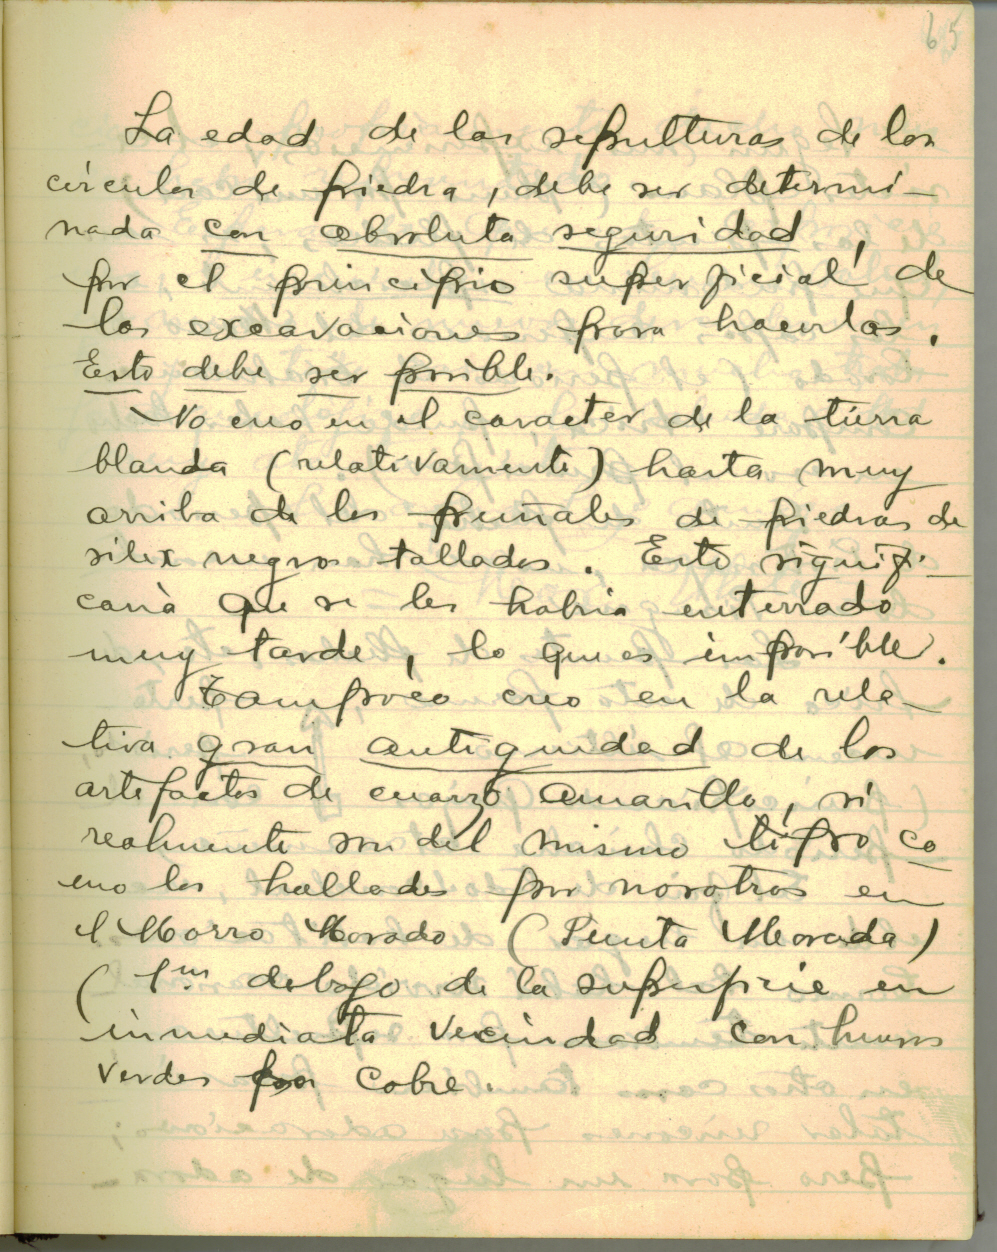 65
La edad de las sepulturas de los
círculos de piedra, debe ser determi-
nada con absoluta seguridad,
por el principio superficial de
las excavaciones para hacerlas.
Esto debe ser posible.
No creo en el caracter de la tierra
blanda (relativamente) hasta muy
arriba de los puñales de piedras de
silex negros tallados. Esto signifi-
caria que se les habria enterrado
muy tarde, lo que es imposible.
Tampoco creo en la rela-
tiva gran antiguedad de los
artefactos de cuarzo amarillo, si
realmente son del mismo tipo co
mo los hallados por nosotros en
el Morro Morado (Punta Morada)
(1m debajo de la superficie en
inmediata vecindad con huesos
verdes por cobre.